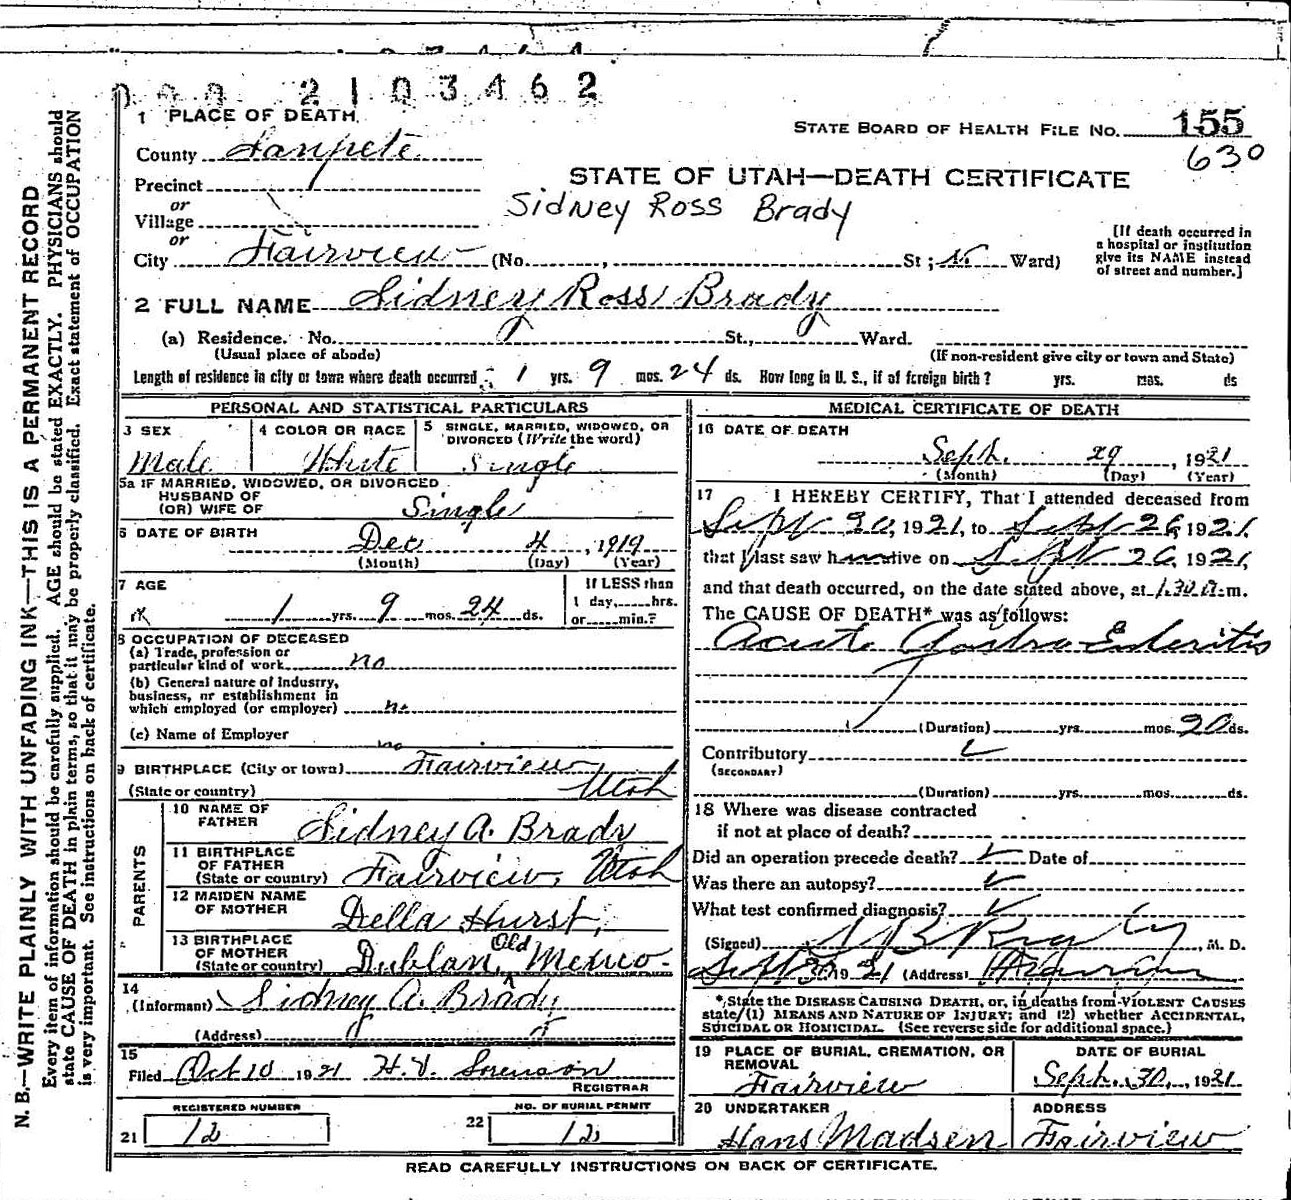 2103462
1 PLACE OF DEATH
STATE BOARD OF HEALTH FILE NO. 155
630
County Sanpete
Precinct
or
Village
or
City Fairview (No. , St; Ward)
STATE OF UTAH—DEATH CERTIFICATE
Sidney Ross Brady
[If death occurred in
a hospital or institution
give its NAME instead
of street and number.]
2 FULL NAME Sidney Ross Brady
(a) Residence. No. St., Ward.
(Usual place of abode) (If non-resident give city or town and State)
Length of residence in city or town where death occurred 1 yrs. 9 mos. 24 ds. How long in U. S., if of foreign birth? yrs. mos. ds
PERSONAL AND STATISTICAL PARTICULARS
3 SEX Male
4 COLOR OR RACE White
5 SINGLE, MARRIED, WIDOWED, OR
DIVORCED (Write the word)
Single
5a IF MARRIED, WIDOWED, OR DIVORCED
HUSBAND OF
(OR) WIFE OF Single
6 DATE OF BIRTH
Dec 4, 1919
(Month) (Day) (Year)
7 AGE
1 yrs. 9 mos. 24 ds.
If LESS than
1 day, hrs.
or min.?
8 OCCUPATION OF DECEASED
(a) Trade, profession or
particular kind of work no
(b) General nature of industry,
business, or establishment in
which employed (or employer) no
(c) Name of Employer
no
9 BIRTHPLACE (City or town) Fairview
(State or country) Utah
PARENTS
10 NAME OF
FATHER Sidney A. Brady
11 BIRTHPLACE
OF FATHER
(State or country) Fairview, Utah
12 MAIDEN NAME
OF MOTHER Della Hurst,
13 BIRTHPLACE
OF MOTHER
(State or country) Dublan, Old Mexico.
14
(Informant) Sidney A. Brady
(Address)
15
Filed Oct 10 1921 H.V. Sorenson
REGISTRAR
REGISTERED NUMBER
21 12
NO. OF BURIAL PERMIT
22 12
MEDICAL CERTIFICATE OF DEATH
16 DATE OF DEATH
Sept. 29, 1921
(Month) (Day) (Year)
17 I HEREBY CERTIFY, That I attended deceased from
Sept 20, 1921, to Sept 26, 1921,
that I last saw h alive on Sept 26, 1921,
and that death occurred, on the date stated above, at 1.30 m.
The CAUSE OF DEATH* was as follows:
Acute Gastro Enteritis
(Duration) yrs. mos. 20 ds.
Contributory
(SECONDARY)
(Duration) yrs. mos. ds.
18 Where was disease contracted
if not at place of death?
Did an operation precede death? Date of
Was there an autopsy?
What test confirmed diagnosis?
(Signed) , M. D.
Sept 30 1921 (Address)
*State the DISEASE CAUSING DEATH, or, in deaths from VIOLENT CAUSES
state (1) MEANS AND NATURE OF INJURY; and (2) whether ACCIDENTAL,
SUICIDAL OR HOMICIDAL. (See reverse side for additional space.)
19 PLACE OF BURIAL, CREMATION, OR
REMOVAL
Fairview
DATE OF BURIAL
Sept. 30, 1921
20 UNDERTAKER
Hans Madsen
ADDRESS
Fairview
READ CAREFULLY INSTRUCTIONS ON BACK OF CERTIFICATE.
N. B.—WRITE PLAINLY WITH UNFADING INK—THIS IS A PERMANENT RECORD
Every item of information should be carefully supplied. AGE should be stated EXACTLY. PHYSICIANS should
state CAUSE OF DEATH in plain terms, so that it may be properly classified. Exact statement of OCCUPATION
is very important. See instructions on back of certificate.